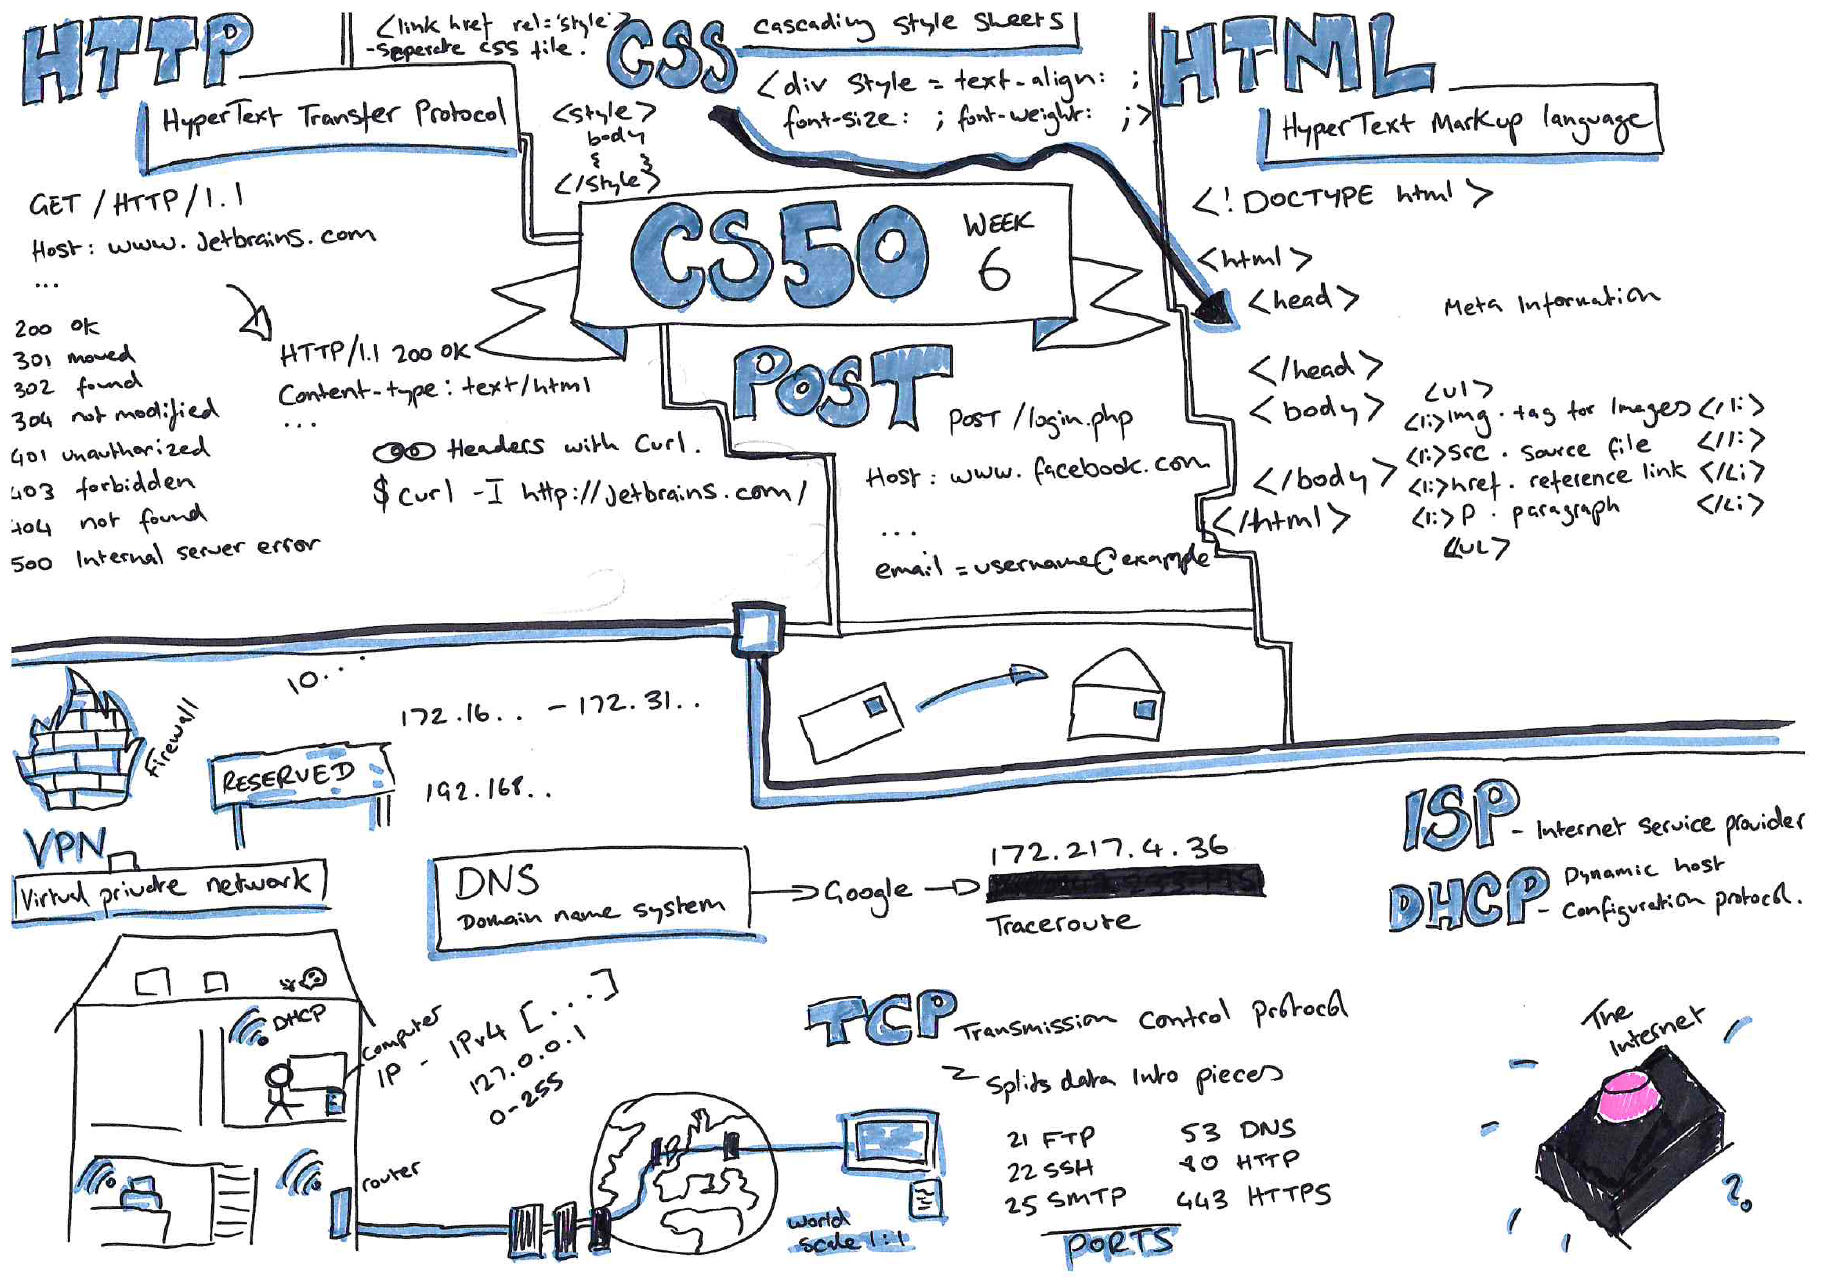 HTTP
HyperText Transfer Protocol
GET / HTTP/1.1
Host: www.Jetbrains.com
...
200 ok
301 moved
302 found
304 not modified
401 unauthorized
403 forbidden
404 not found
500 Internal server error
HTTP/1.1 200 OK
Content-type: text/html
...
Headers with Curl.
$ curl -I http://Jetbrains.com/
<link href rel='style'>
-Seperate CSS file.
CSS
cascading style sheets
<div style = text-align: ;
font-size: ; font-weight: ;>
<style>
body
{ }
</style>
CS50
WEEK
6
POST
POST /login.php
Host: www.facebook.com
...
email = username@example
HTML
HyperText Markup language
<!DOCTYPE html>
<html>
<head>
Meta Information
</head>
<body>
<ul>
<li>Img - tag for Images</li>
<li>src - source file </li>
<li>href - reference link </li>
<li>P - paragraph </li>
<ul>
</body>
</html>
Firewall
10...
172.16.. - 172.31..
RESERVED
192.168..
VPN
Virtual private network
DNS
Domain name system
Google
172.217.4.36
Traceroute
ISP - Internet service provider
DHCP - Dynamic host
Configuration protocol.
DHCP
computer
IP - IPv4 [...]
127.0.0.1
0-255
router
world
scale 1:1
TCP Transmission Control protocol
splits data into pieces
21 FTP
22 SSH
25 SMTP
53 DNS
80 HTTP
443 HTTPS
PORTS
The
Internet
?